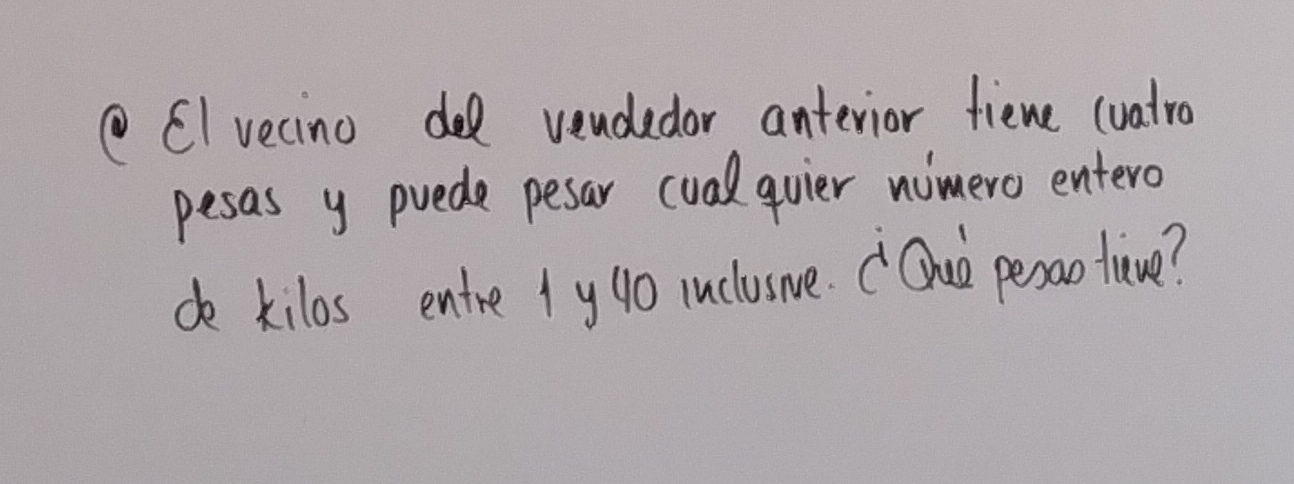 @ El vecino del vendedor anterior tiene cuatro
pesas y puede pesar cualquier número entero
de kilos entre 1 y 40 inclusive. ¿Qué pesas tiene?